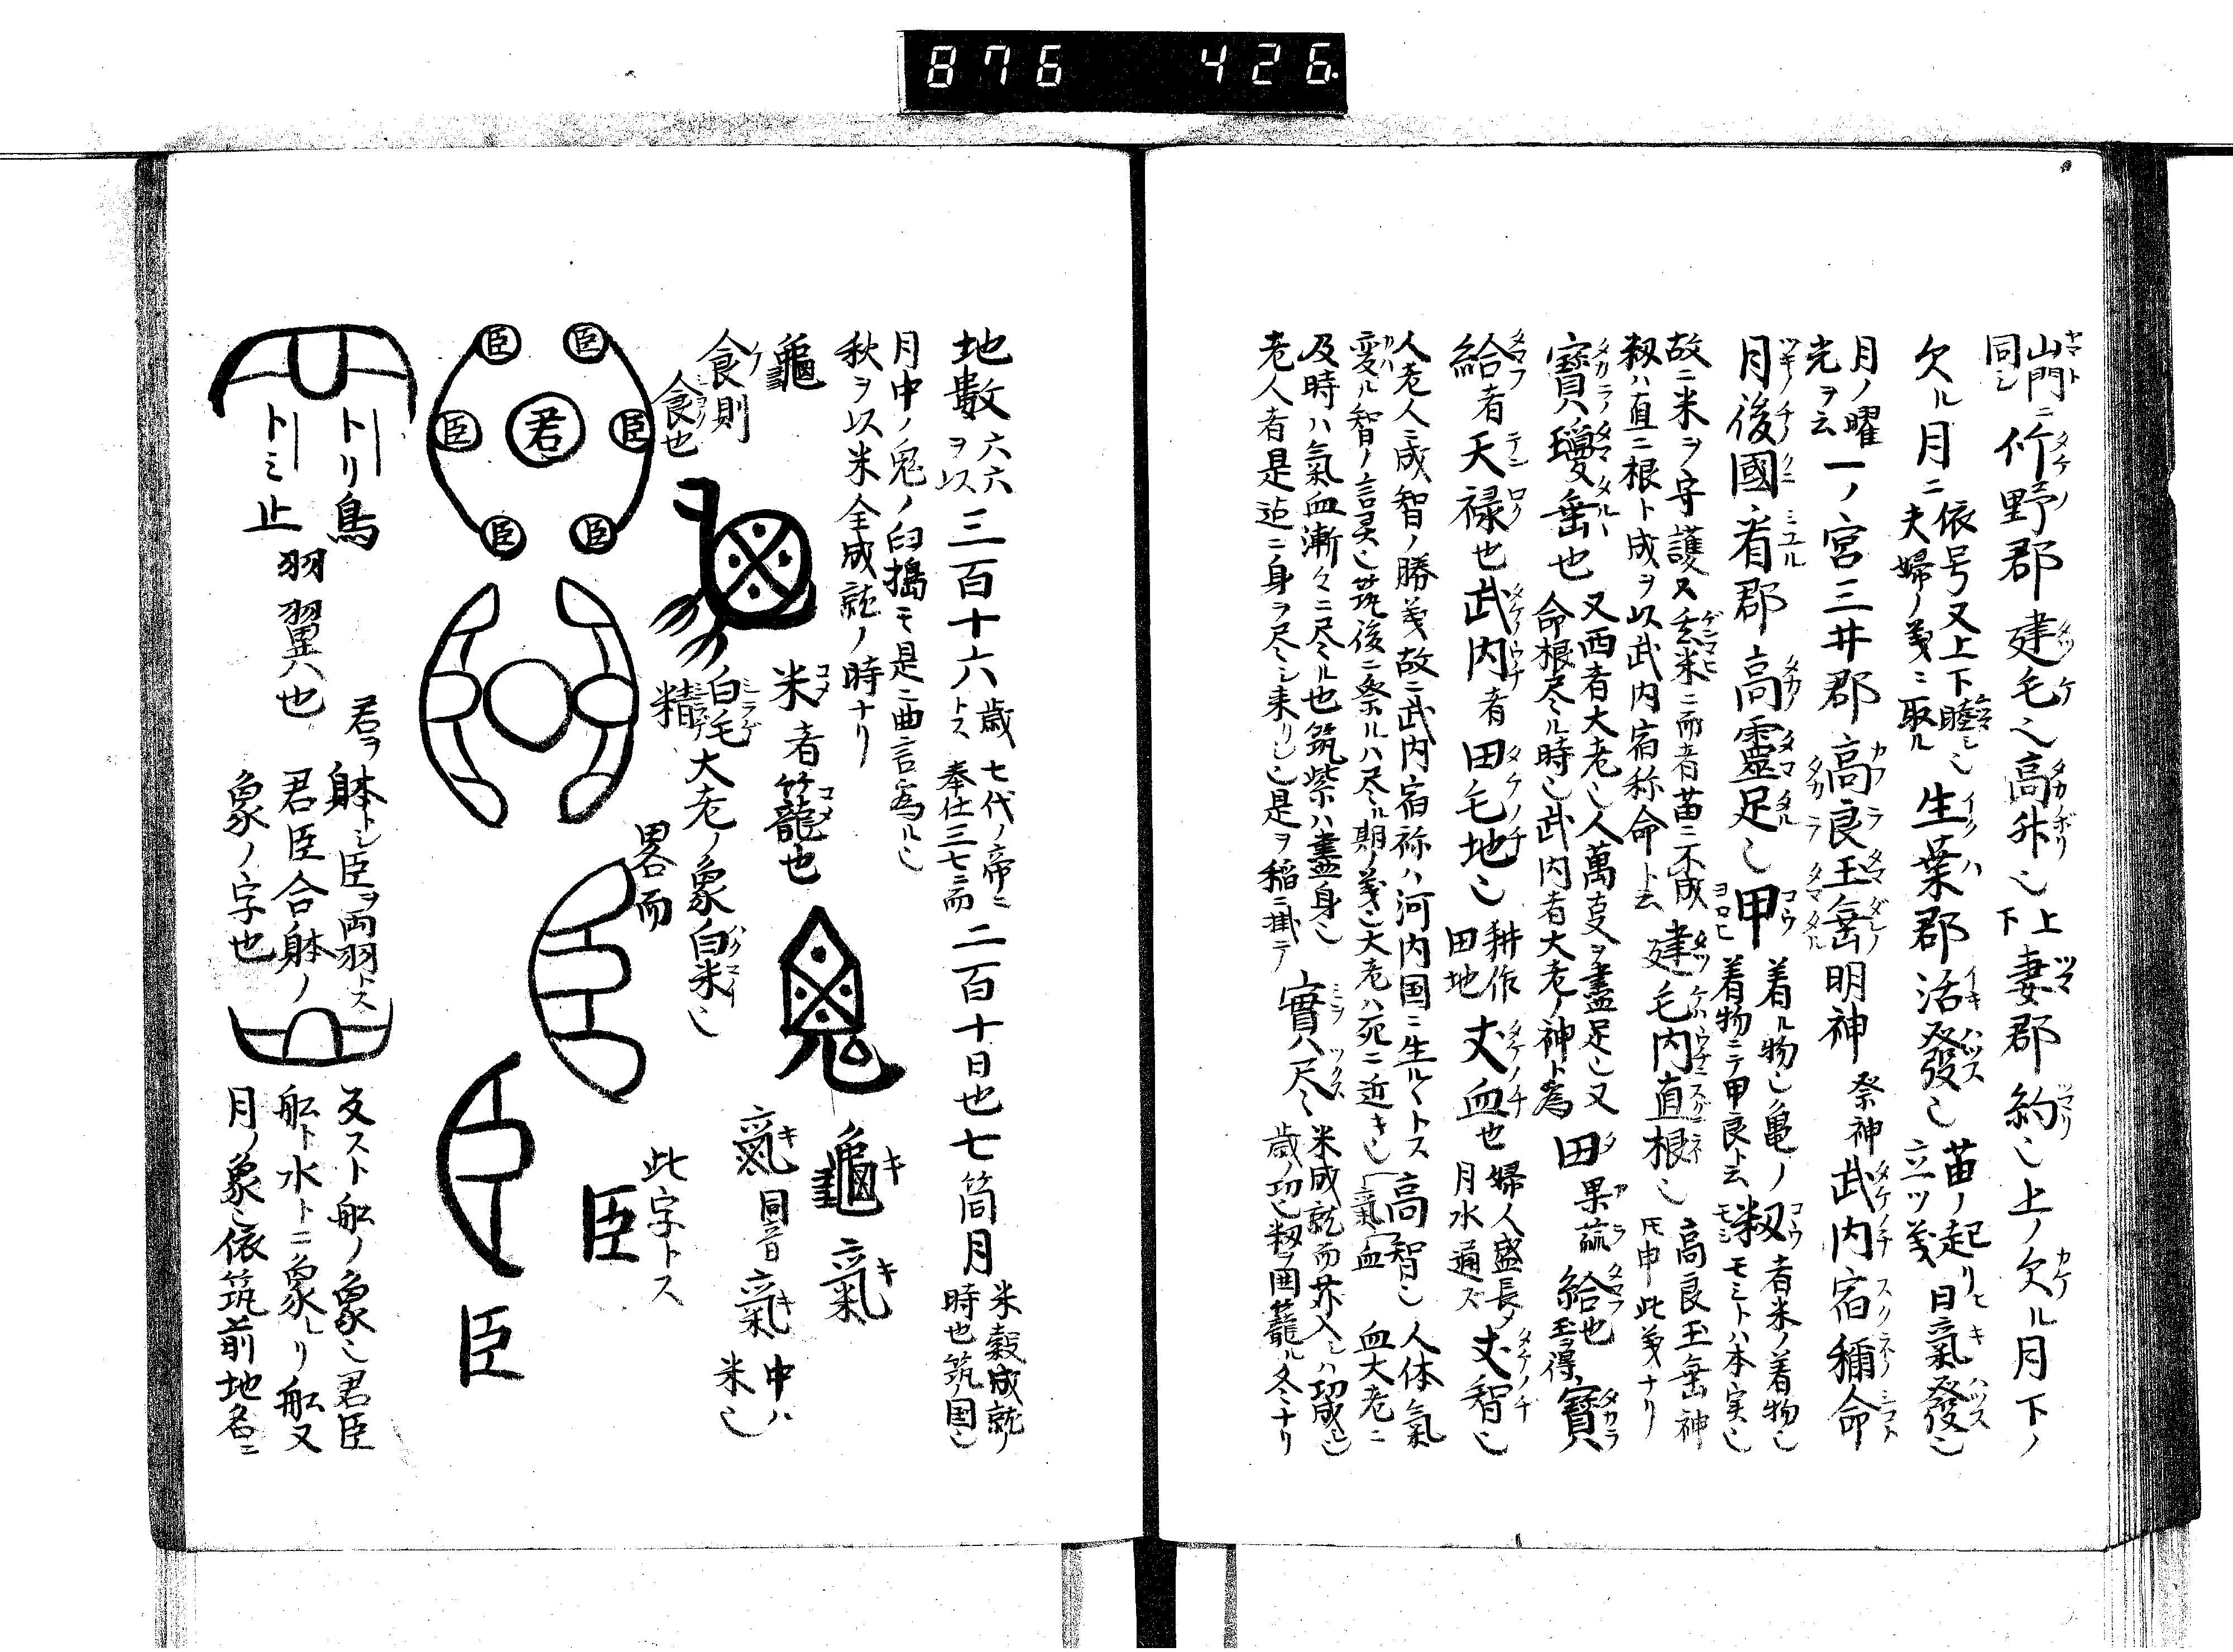 876 426
山門ニ竹野郡建毛之高升也上妻郡約也上ノ欠ル月下ノ
同シ 下
欠ル月ニ依号又上下睦シ也生葉郡活發也苗ノ起リ日氣發也
夫婦ノ義ニ取ル 立ツ義
月ノ曜一ノ宮三井郡高良玉垂明神祭神武内宿称命
光ヲ云
月後國者郡高靈足也甲着ル物也亀ノ籾者米ノ着物也
着物ニテ甲良ト云 モミトハ本実也
故ニ米ヲ守護又玄米ニ而者苗ニ不成建毛内直根也高良玉垂神
籾ハ直ニ根ト成ヲ以武内宿称命ト云 ト申此義ナリ
寶瓊垂也又西者大老也人萬支ヲ盡足也又田果蔬給也寶
命根尽ル時也武内者大老ノ神ト為 玉得
給者天禄也武内者田毛地也耕作丈血也婦人盛長丈智也
田地 月水通ズ
人老人ニ成智ノ勝義故ニ武内宿祢ハ河内国ニ生ルトス高智也人体氣
変ル智ノ言灵也筑後ニ祭ルハ尽ル期ノ義也大老ハ死ニ近キ也氣血 血大老ニ
及時ハ氣血漸々ニ尽ル也筑紫ハ盡身也實尽米成就而苅入ハ功成也
老人者是迠ニ身ヲ尽シ来リシ也是ヲ稲ニ掛テ 歳ノ功也籾ヲ囲籠ル冬ナリ
地數六六ヲ以三百十六歳トス七代ノ帝ニ奉仕三七而二百十日也七箇月米穀成就ノ時也筑ノ国也
月中ノ鬼ノ臼搗モ是ニ曲言為ル也
秋ヲ以米全成就ノ時ナリ
龜 米者籠也 龜 氣
食則 白毛大老ノ象白米也 氣同音氣中ハ米也
食也 精 畧而 此字トス
臣 臣 臣 君 臣 臣 臣
臣
臣
トリ鳥 君ヲ躰トシ臣ヲ両羽トス 文スト舩ノ象也君臣
トミ止 羽翼ハ也 君臣合躰ノ 舩ト水トニ象レリ舩又
象ノ字也 月ノ象也依筑前地名ニ